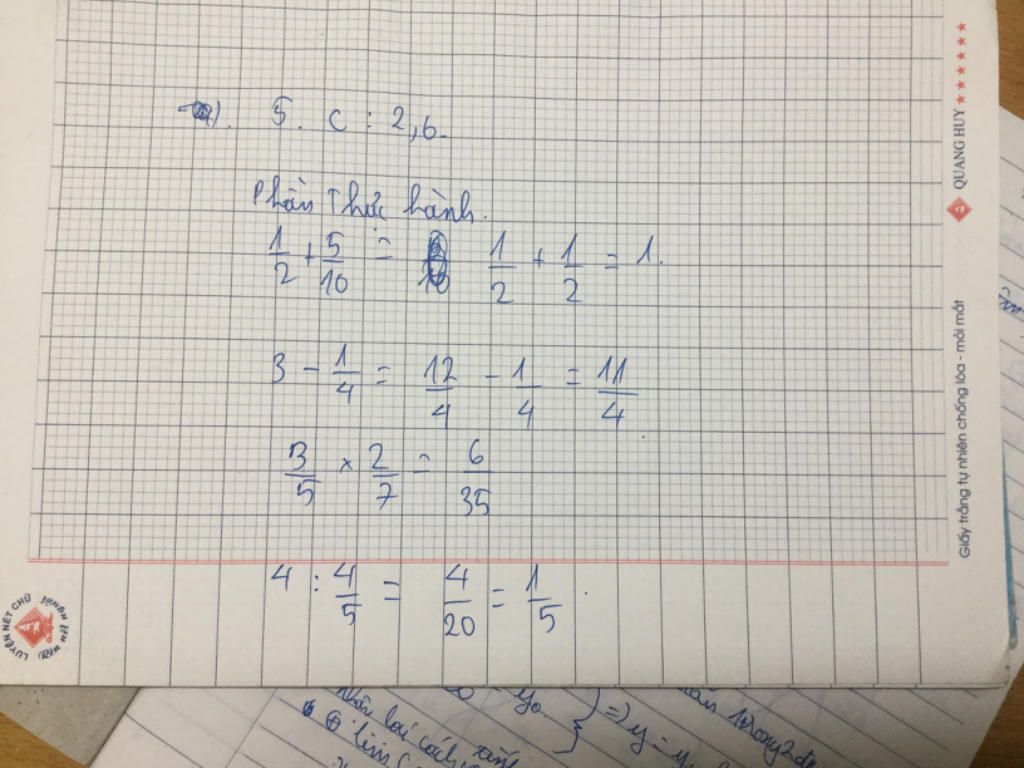 a). 5. C : 2,6.
Phần Thức hành.
1/2 + 5/10 = 1/2 + 1/2 = 1.
3 - 1/4 = 12/4 - 1/4 = 11/4
3/5 × 2/7 = 6/35
4 : 4/5 = 4/20 = 1/5.
QUANG HUY
Giấy trắng tự nhiên chống lóa - mỏi mắt
LUYỆN NÉT CHỮ
RÈN NẾT NGƯỜI
yo
=) y =